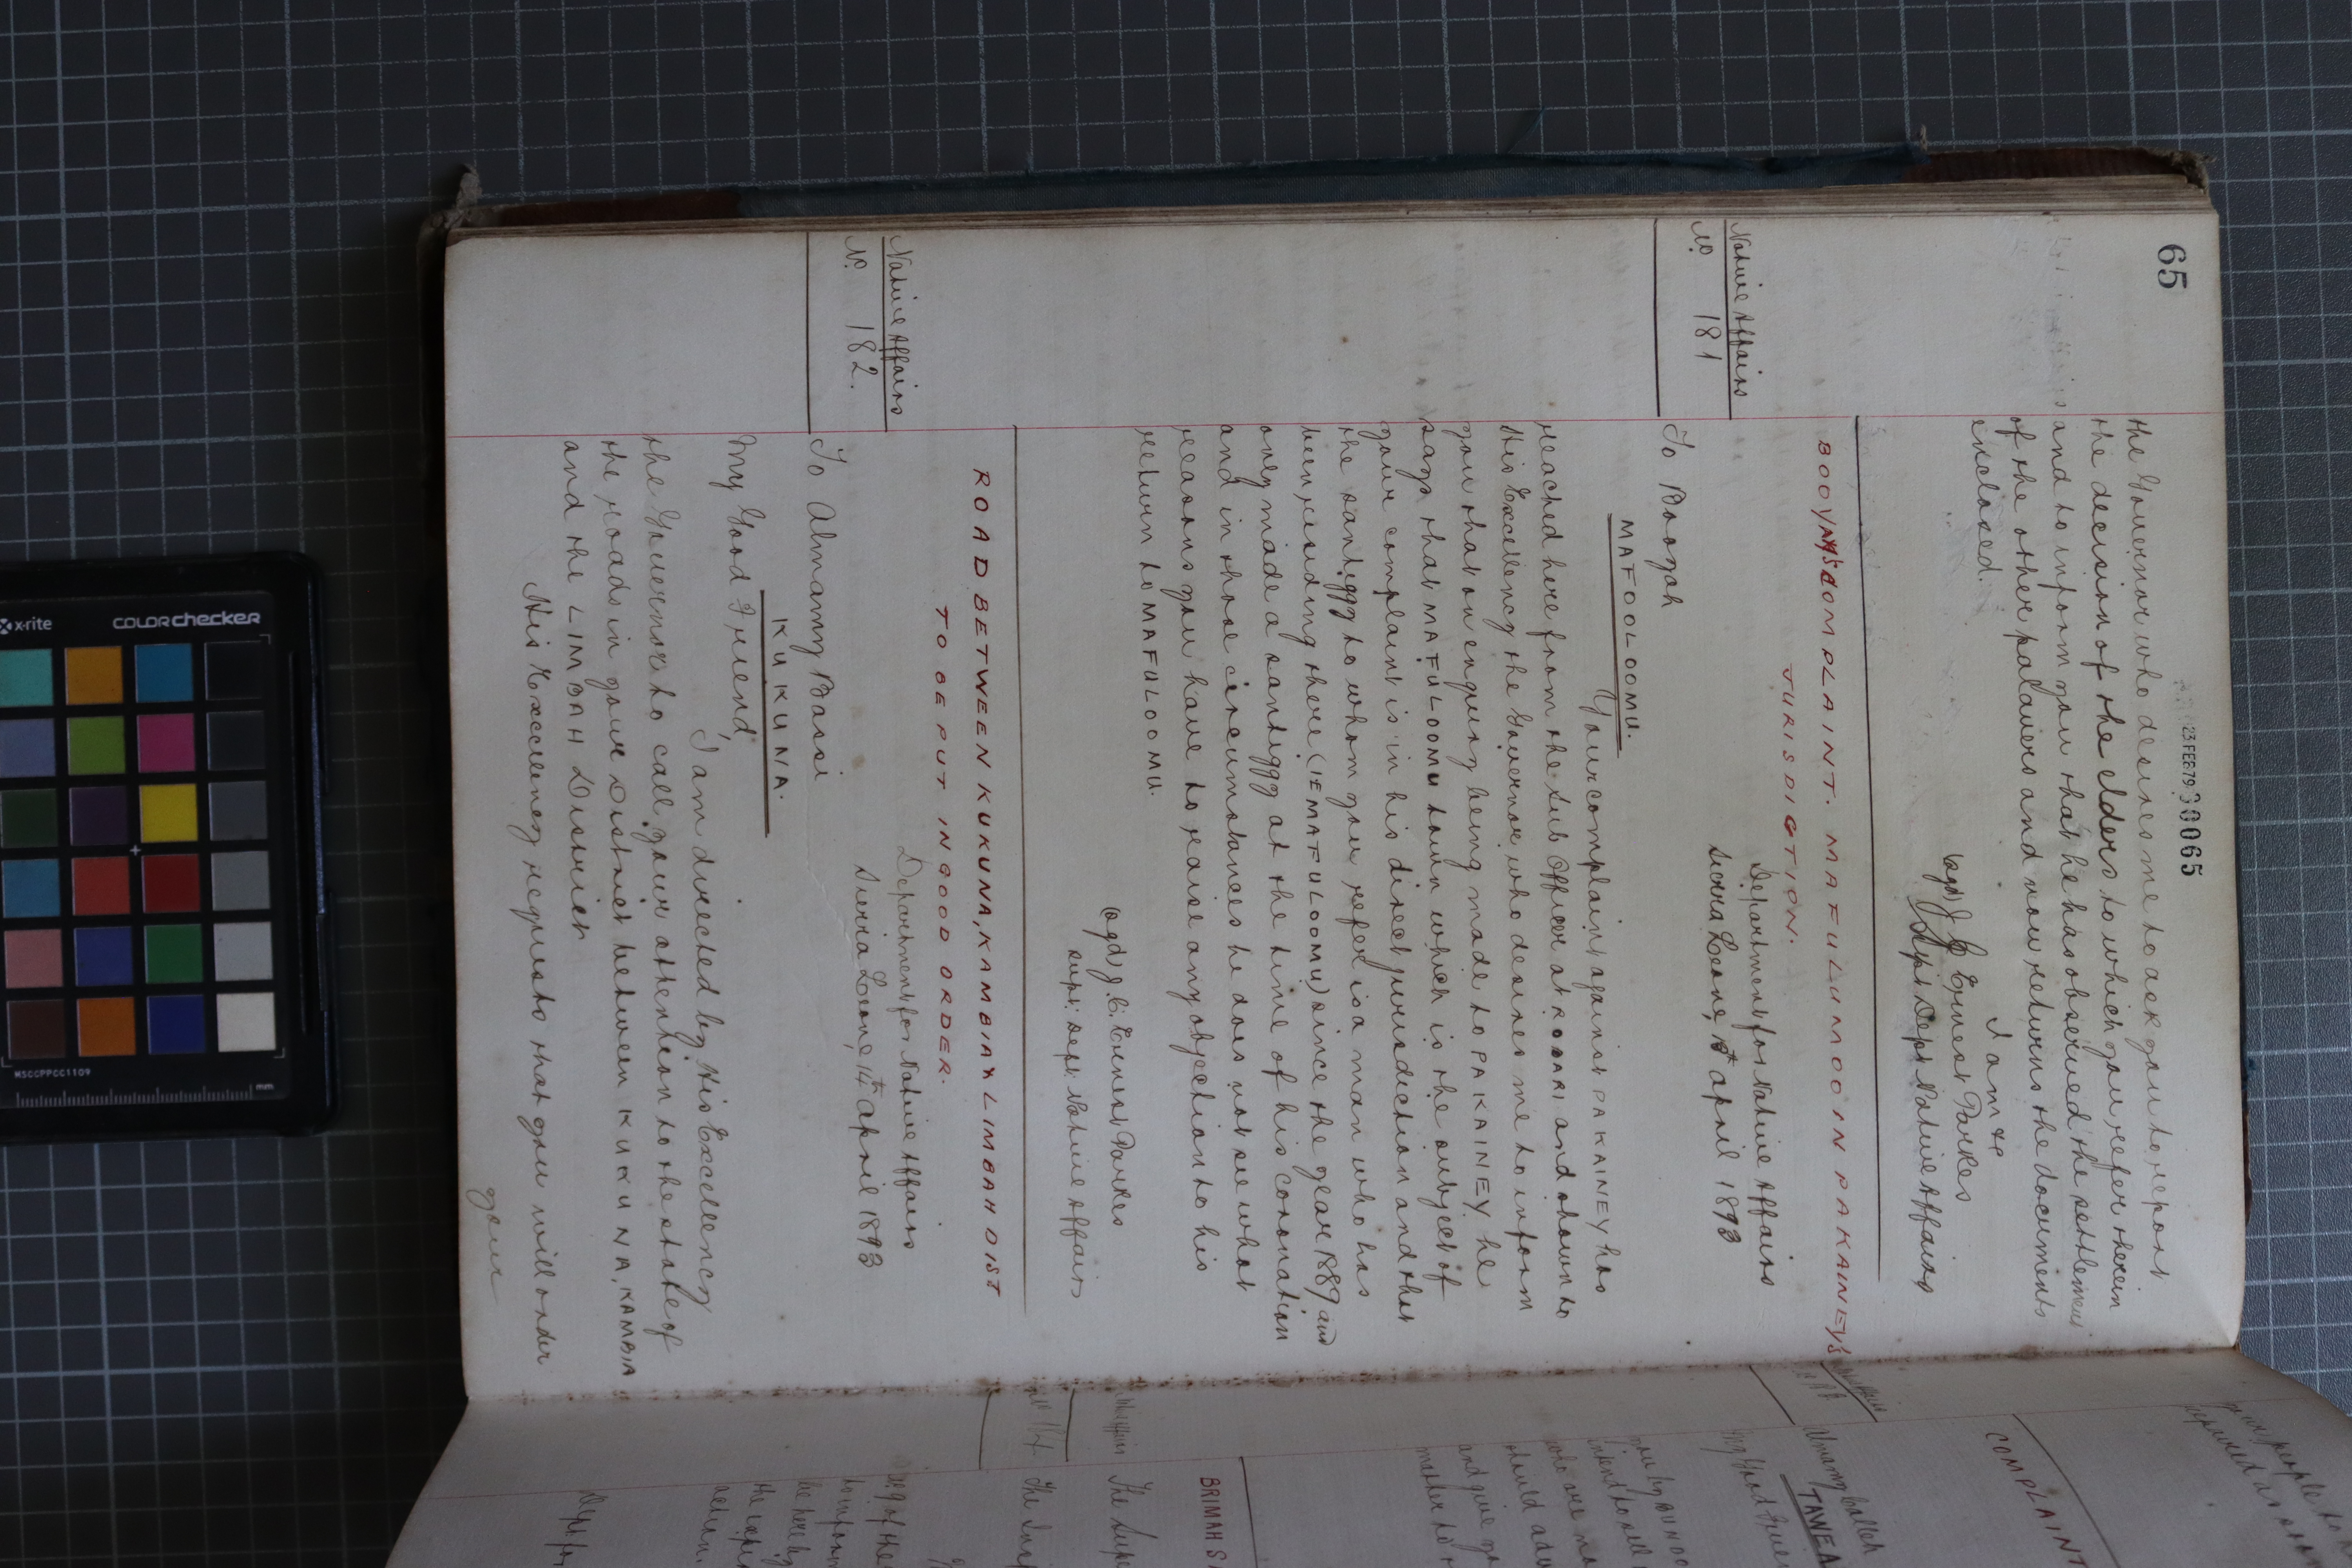 65
23 FEB 79 30065
the Governor who desires me to ask you to report
the decision of the elders to which you refer therein
and to inform you that he has observed the settlement
of the other palavers and now returns the documents
enclosed.
I am &c
(sgd) J. C. Ernest Parkes
Supt. Dept. Native Affairs
BOOYAH'S COMPLAINT. MAFULUMO ON PAKAINEY'S
JURISDICTION.
Native Affairs
No. 181
Department for Native Affairs
Sierra Leone, April 1893
To Booyah
MAFOOLOOMU.
Your complaint against PAKAINEY has
reached here from the Sub Officer at ROBARI and shown to
His Excellency the Governor who desires me to inform
you that on enquiry being made to PAKAINEY he
says that MAFULOOMU town which is the subject of
your complaint is in his direct jurisdiction and that
the santiggy to whom you refer is a man who has
been residing there (IE MAFULOOMU) since the year 1889 and
only made a santiggy at the time of his coronation
and in those circumstances he does not see what
reasons you have to raise any objection to his
return to MAFULOOMU.
(sgd) J. C. Ernest Parkes
Supt: Dept. Native Affairs
ROAD BETWEEN KUKUNA, KAMBIA & LIMBAH DIST
TO BE PUT IN GOOD ORDER.
Native Affairs
No. 182.
Department for Native Affairs
Sierra Leone, 14th April 1893
To Almamy Bassi
KUKUNA.
My Good Friend,
I am directed by His Excellency
the Governor to call your attention to the state of
the roads in your District between KUKUNA, KAMBIA
and the LIMBAH District
His Excellency requests that you will order
your
COMPLAINT
TAWEA
My Good Frien
BRIMAH S
The Supe
The Insp
x-rite
COLORCHECKER
MSCCPPCC1109
mm